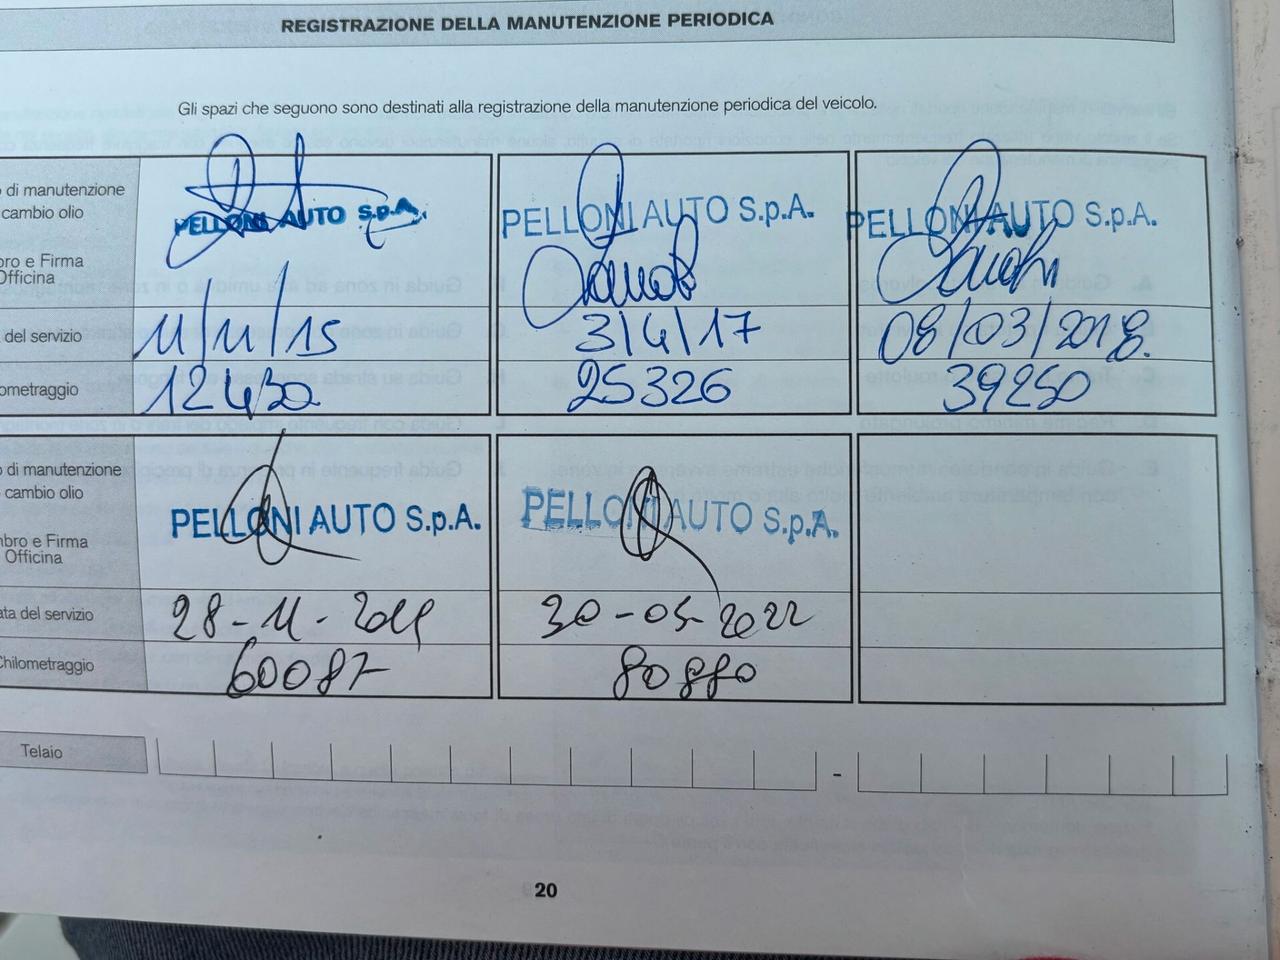 REGISTRAZIONE DELLA MANUTENZIONE PERIODICA
Gli spazi che seguono sono destinati alla registrazione della manutenzione periodica del veicolo.
di manutenzione
cambio olio
PELLONI AUTO S.p.A. PELLONI AUTO S.p.A. PELLONI AUTO S.p.A.
bro e Firma
Officina
del servizio 11/11/15 3/4/17 08/03/2018.
ometraggio 12432 25326 39250
di manutenzione
cambio olio
PELLONI AUTO S.p.A. PELLONI AUTO S.p.A.
mbro e Firma
Officina
ata del servizio 28-11-2019 30-05-2022
Chilometraggio 60087 80880
Telaio -
20